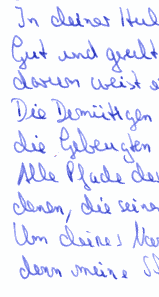 In deiner Hul
Gut und gerecht
darum weist e
Die Demütigen
die Gebeugten
Alle Pfade des
denen, die seine
Um deines
denn meine